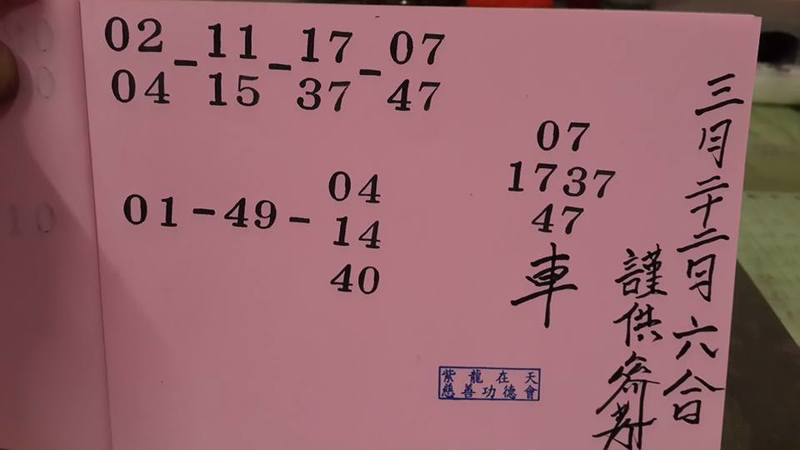 02 11 17 07
04 - 15 - 37 - 47
01 - 49 - 04
14
40
07
1737
47
車
三月二十二日六合
謹供參考
紫龍在天
慈善功德會